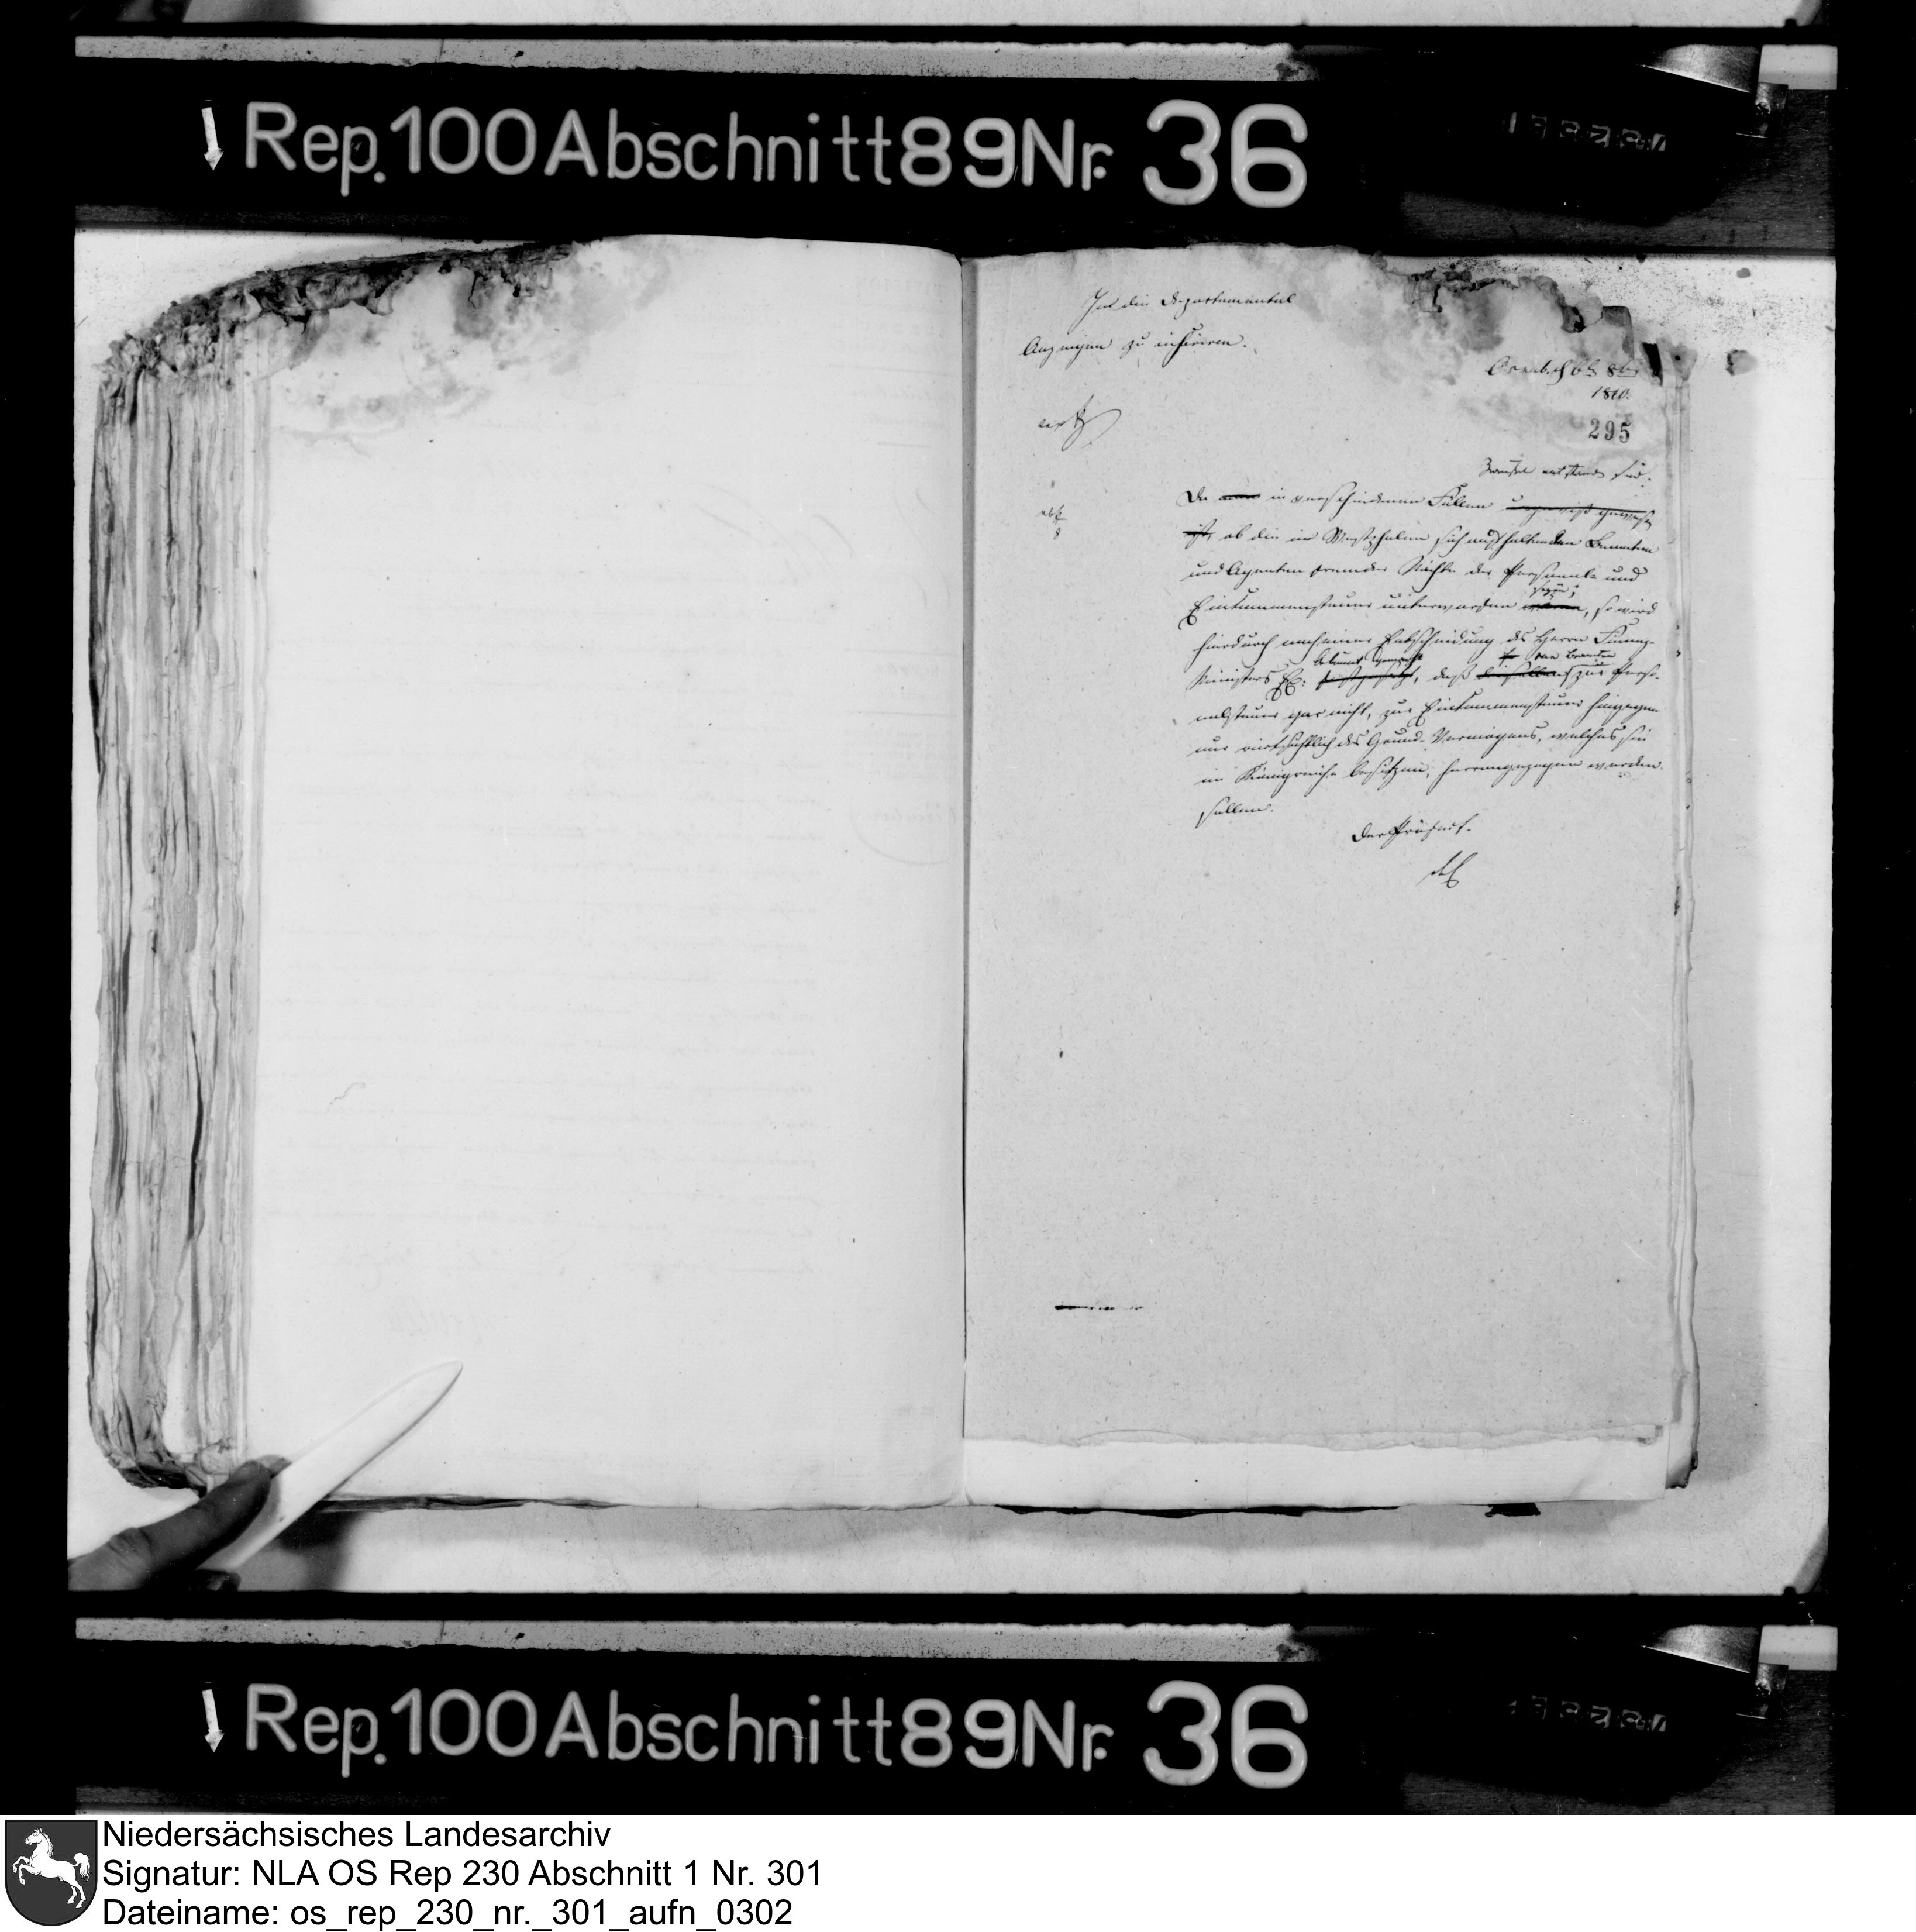 Rep. 100 Abschnitt 89 Nr. 36
In die Departemental
Anzeigen zu inseriren.
Osnabr. d 6t 8br
1810.
295
Zweifel entstanden sind:
Da in verschiedenen Fällen ungewiß gewesen
ist, ob die in Westphalen sich aufhaltenden Beamten
und Agenten fremder Mächte der Personal- und
seyen;
Einkommensteuer unterworfen wären, so wird
hierdurch nach einer Entscheidung des Herrn Finanz-
bekannt gemacht die Beamten
Ministers Ex: festgesetzt, daß dieselben zur Perso-
nalsteuer gar nicht, zur Einkommensteuer hingegen
nur rücksichtlich des Grund-Vermögens, welches sie
im Königreiche besitzen, herangezogen werden
sollen.
Der Präfect.
Rep. 100 Abschnitt 89 Nr. 36
Niedersächsisches Landesarchiv
Signatur: NLA OS Rep 230 Abschnitt 1 Nr. 301
Dateiname: os_rep_230_nr._301_aufn_0302